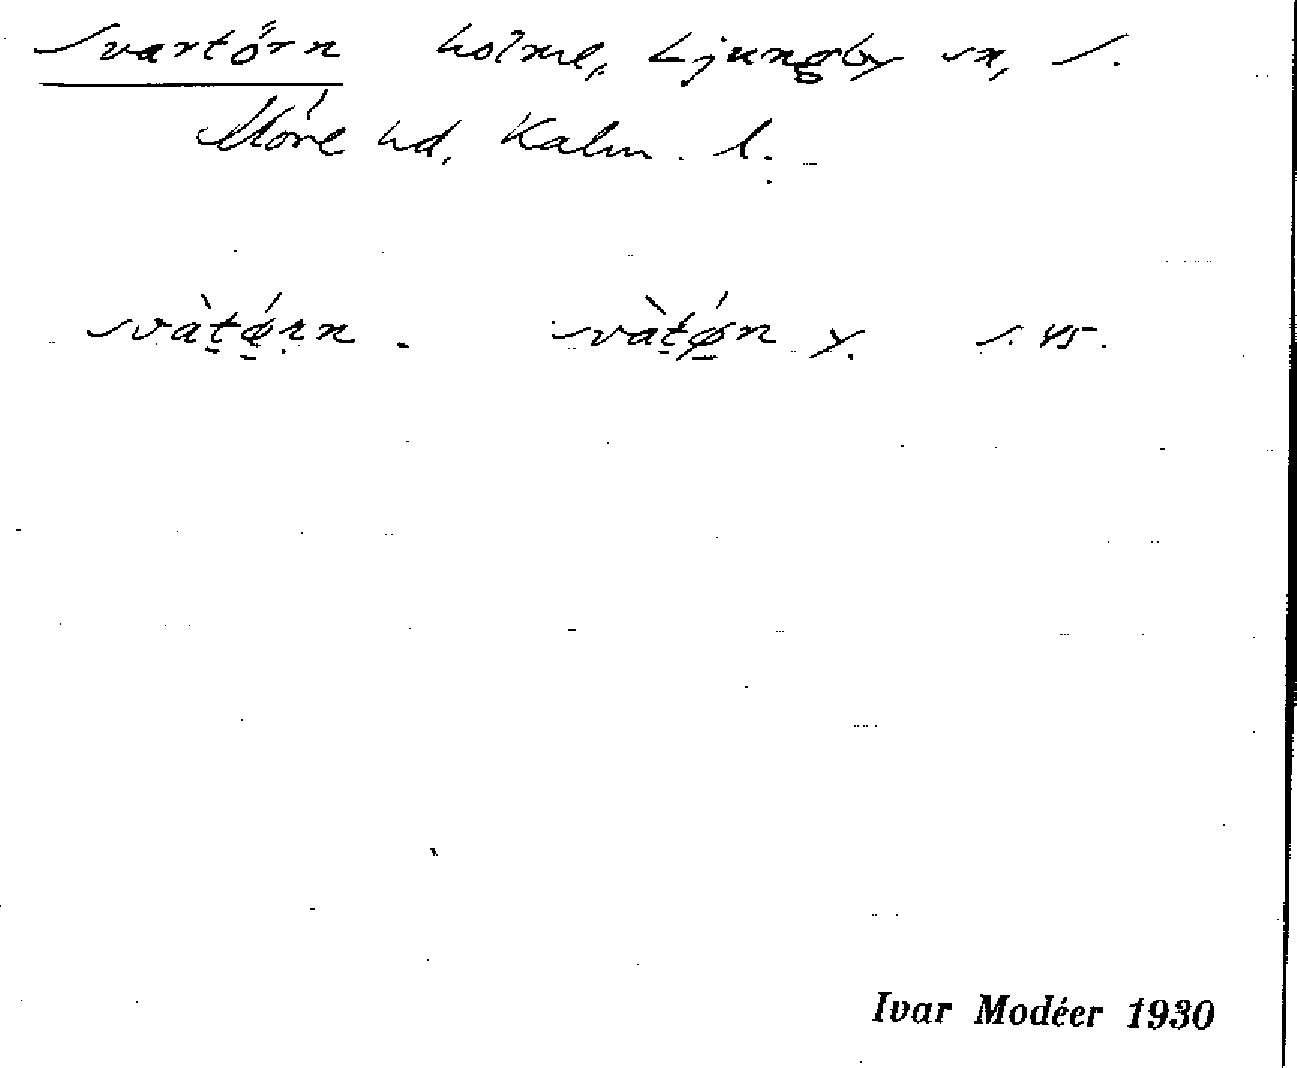 Svartörn holme, Ljungby sn, S.
Möre hd, Kalm. l.
svàtǿrn. svàtǿn y. s. 45.
Ivar Modéer 1930